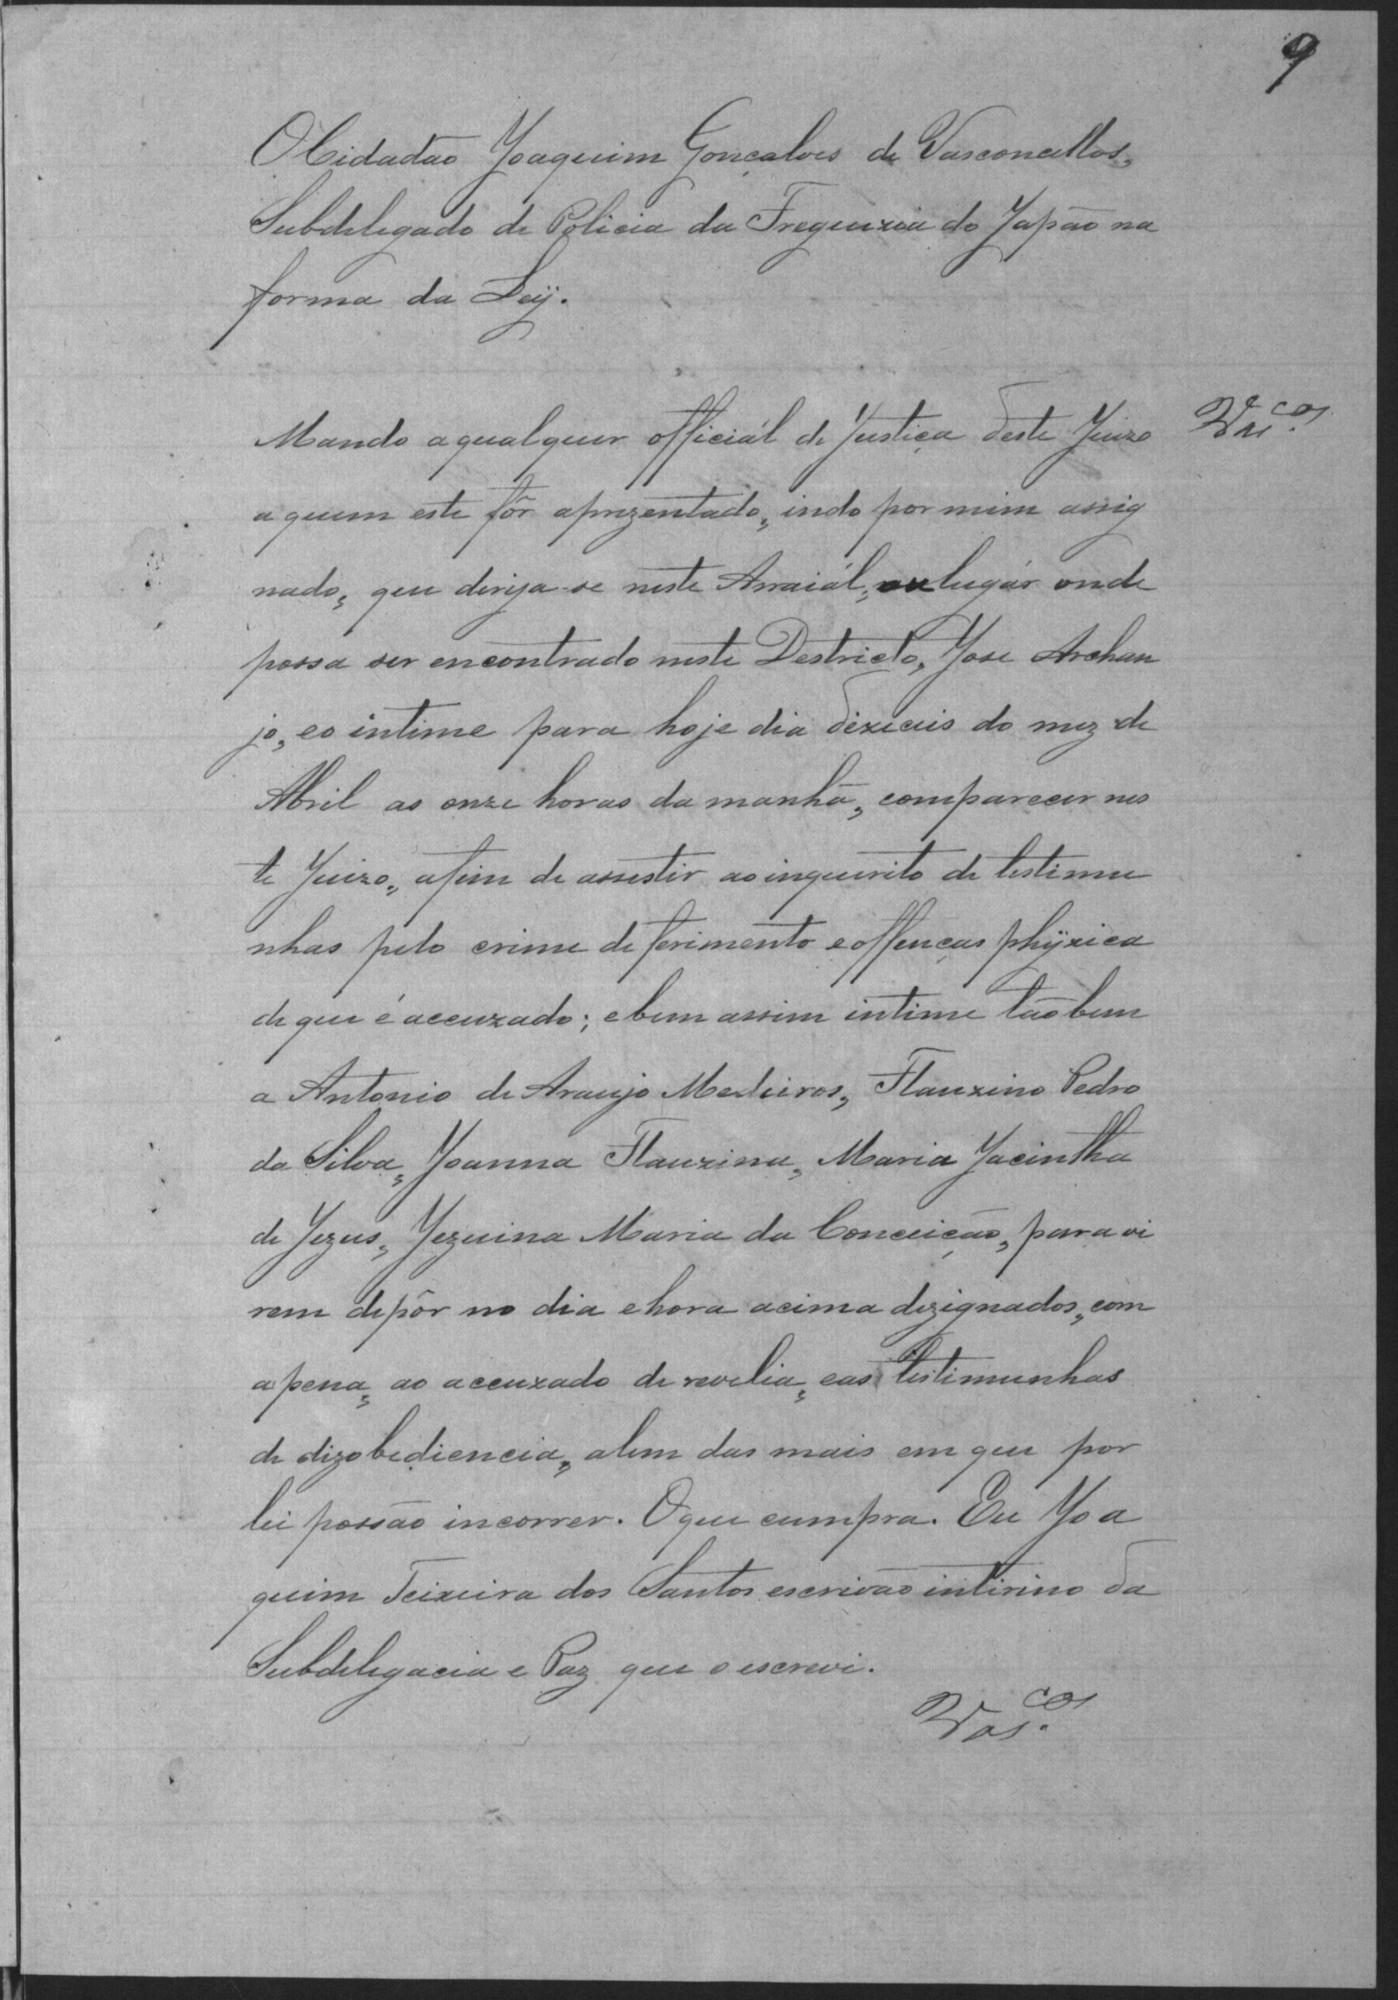 9
O Cidadão Joaquim Gonçalves de Vasconcellos,
Subdelegado de Policia da Freguezia do Japão na
forma da Leÿ.
Mando aqualquer officiál de Justiça deste Juizo
Vas.cos
aquem este fôr aprezentado, indo por mim assig
nado, que dirija-se neste Arraiál, ou lugár onde
possa ser encontrado neste Destricto, Jose Archan
jo, eo intime para hoje dia dezeceis do mez de
Abril as onze horas da manhã, comparecer nes
te Juizo, afim de assestir ao inquerito de testimu
nhas pelo crime de ferimento e offenças phÿzica
de que é accuzado; ebem assim intime tãobem
a Antonio de Araujo Medeiros, Flauzino Pedro
da Silva, Joanna Flauzina, Maria Jacintha
de Jezus, Jezuina Maria da Conceição, para vi
rem depôr no dia ehora acima dezignados, com
apena, ao accuzado de revelia, eas testimunhas
de dizobediencia, alem das mais em que por
lei possão incorrer. Oque cumpra. Eu Joa
quim Teixeira dos Santos escrivão intirino da
Subdelegacia e Paz que o escrevi.
Vas.cos